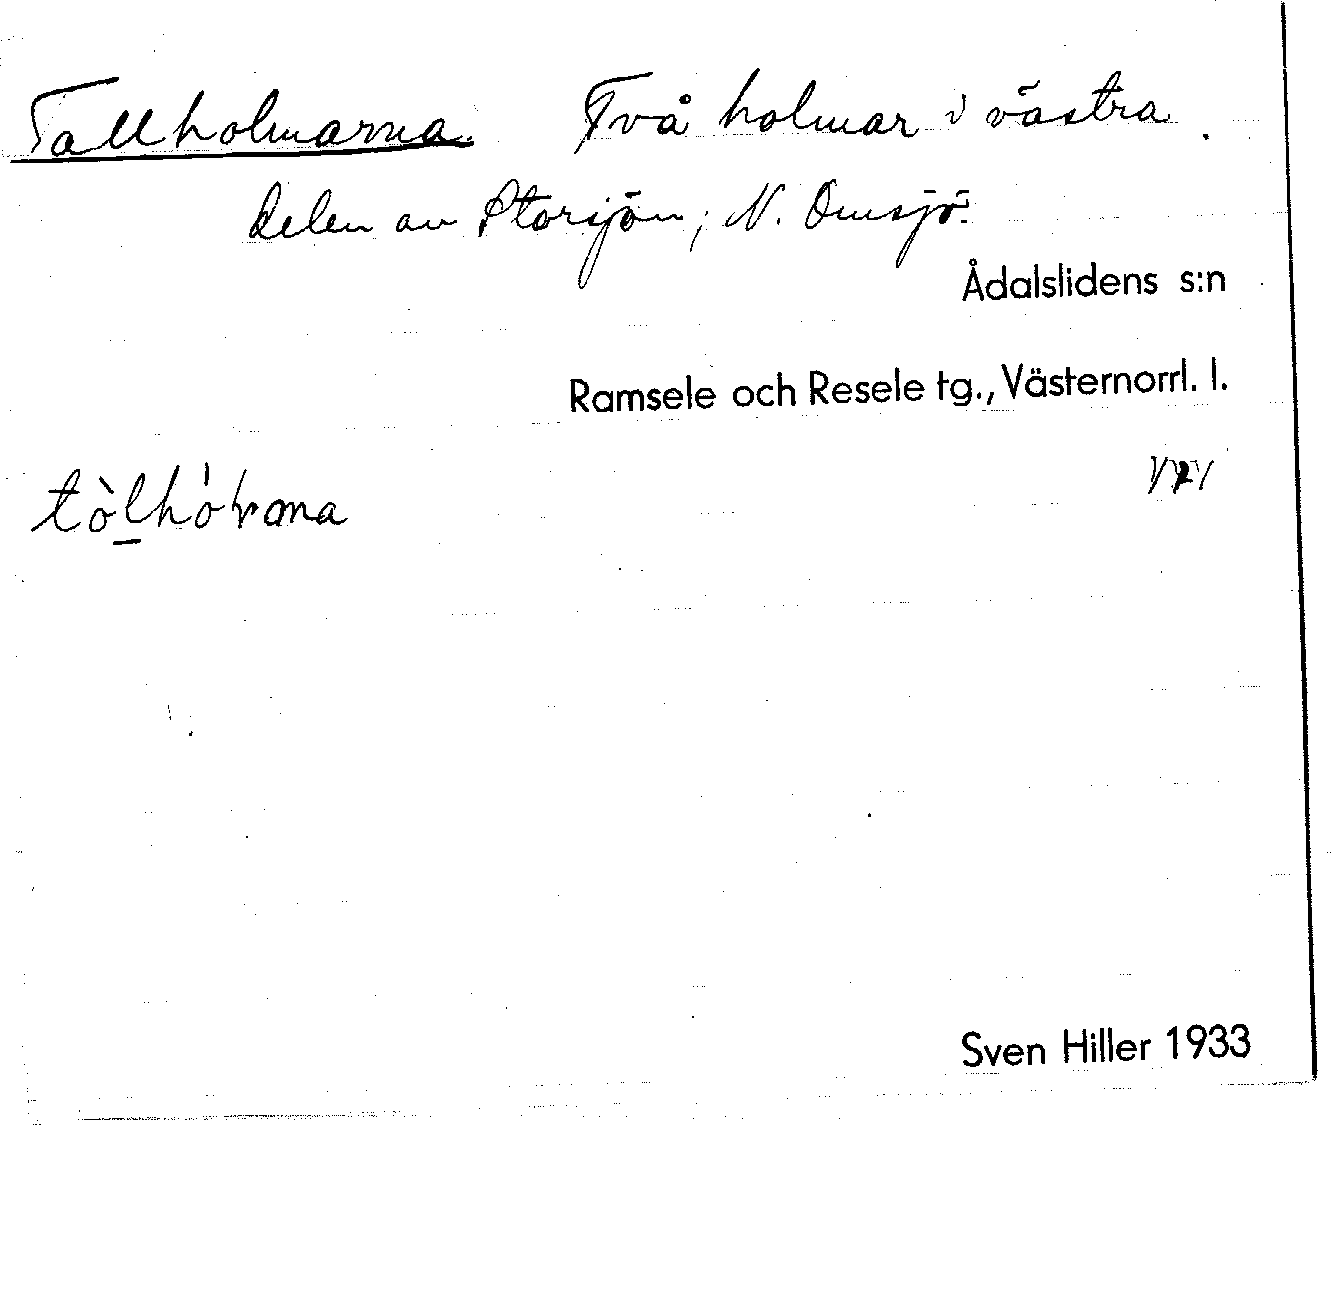 Tallholmarna. Två holmar i västra
delen av Storsjön, N. Omsjö.
Ådalslidens s:n
Ramsele och Resele tg., Västernorrl. l.
Sven Hiller 1933